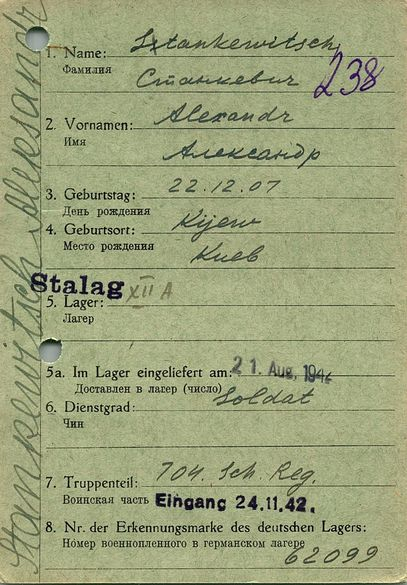 1. Name: Sztankewitsch
Фамилия
Станкевич
238
2. Vornamen: Alexandr
Имя
Александр
3. Geburtstag: 22.12.07
День рождения
4. Geburtsort: Kijew
Место рождения
Киев
Stalag XII A
5. Lager:
Лагер
5a. Im Lager eingeliefert am: 21. Aug. 1942
Доставлен в лагер (число)
6. Dienstgrad: Soldat
Чин
7. Truppenteil: 704. Sch. Reg.
Воинская часть Eingang 24.11.42.
8. Nr. der Erkennungsmarke des deutschen Lagers:
Номер военнопленного в германском лагере
62099
Stankewitsch Aleksandr